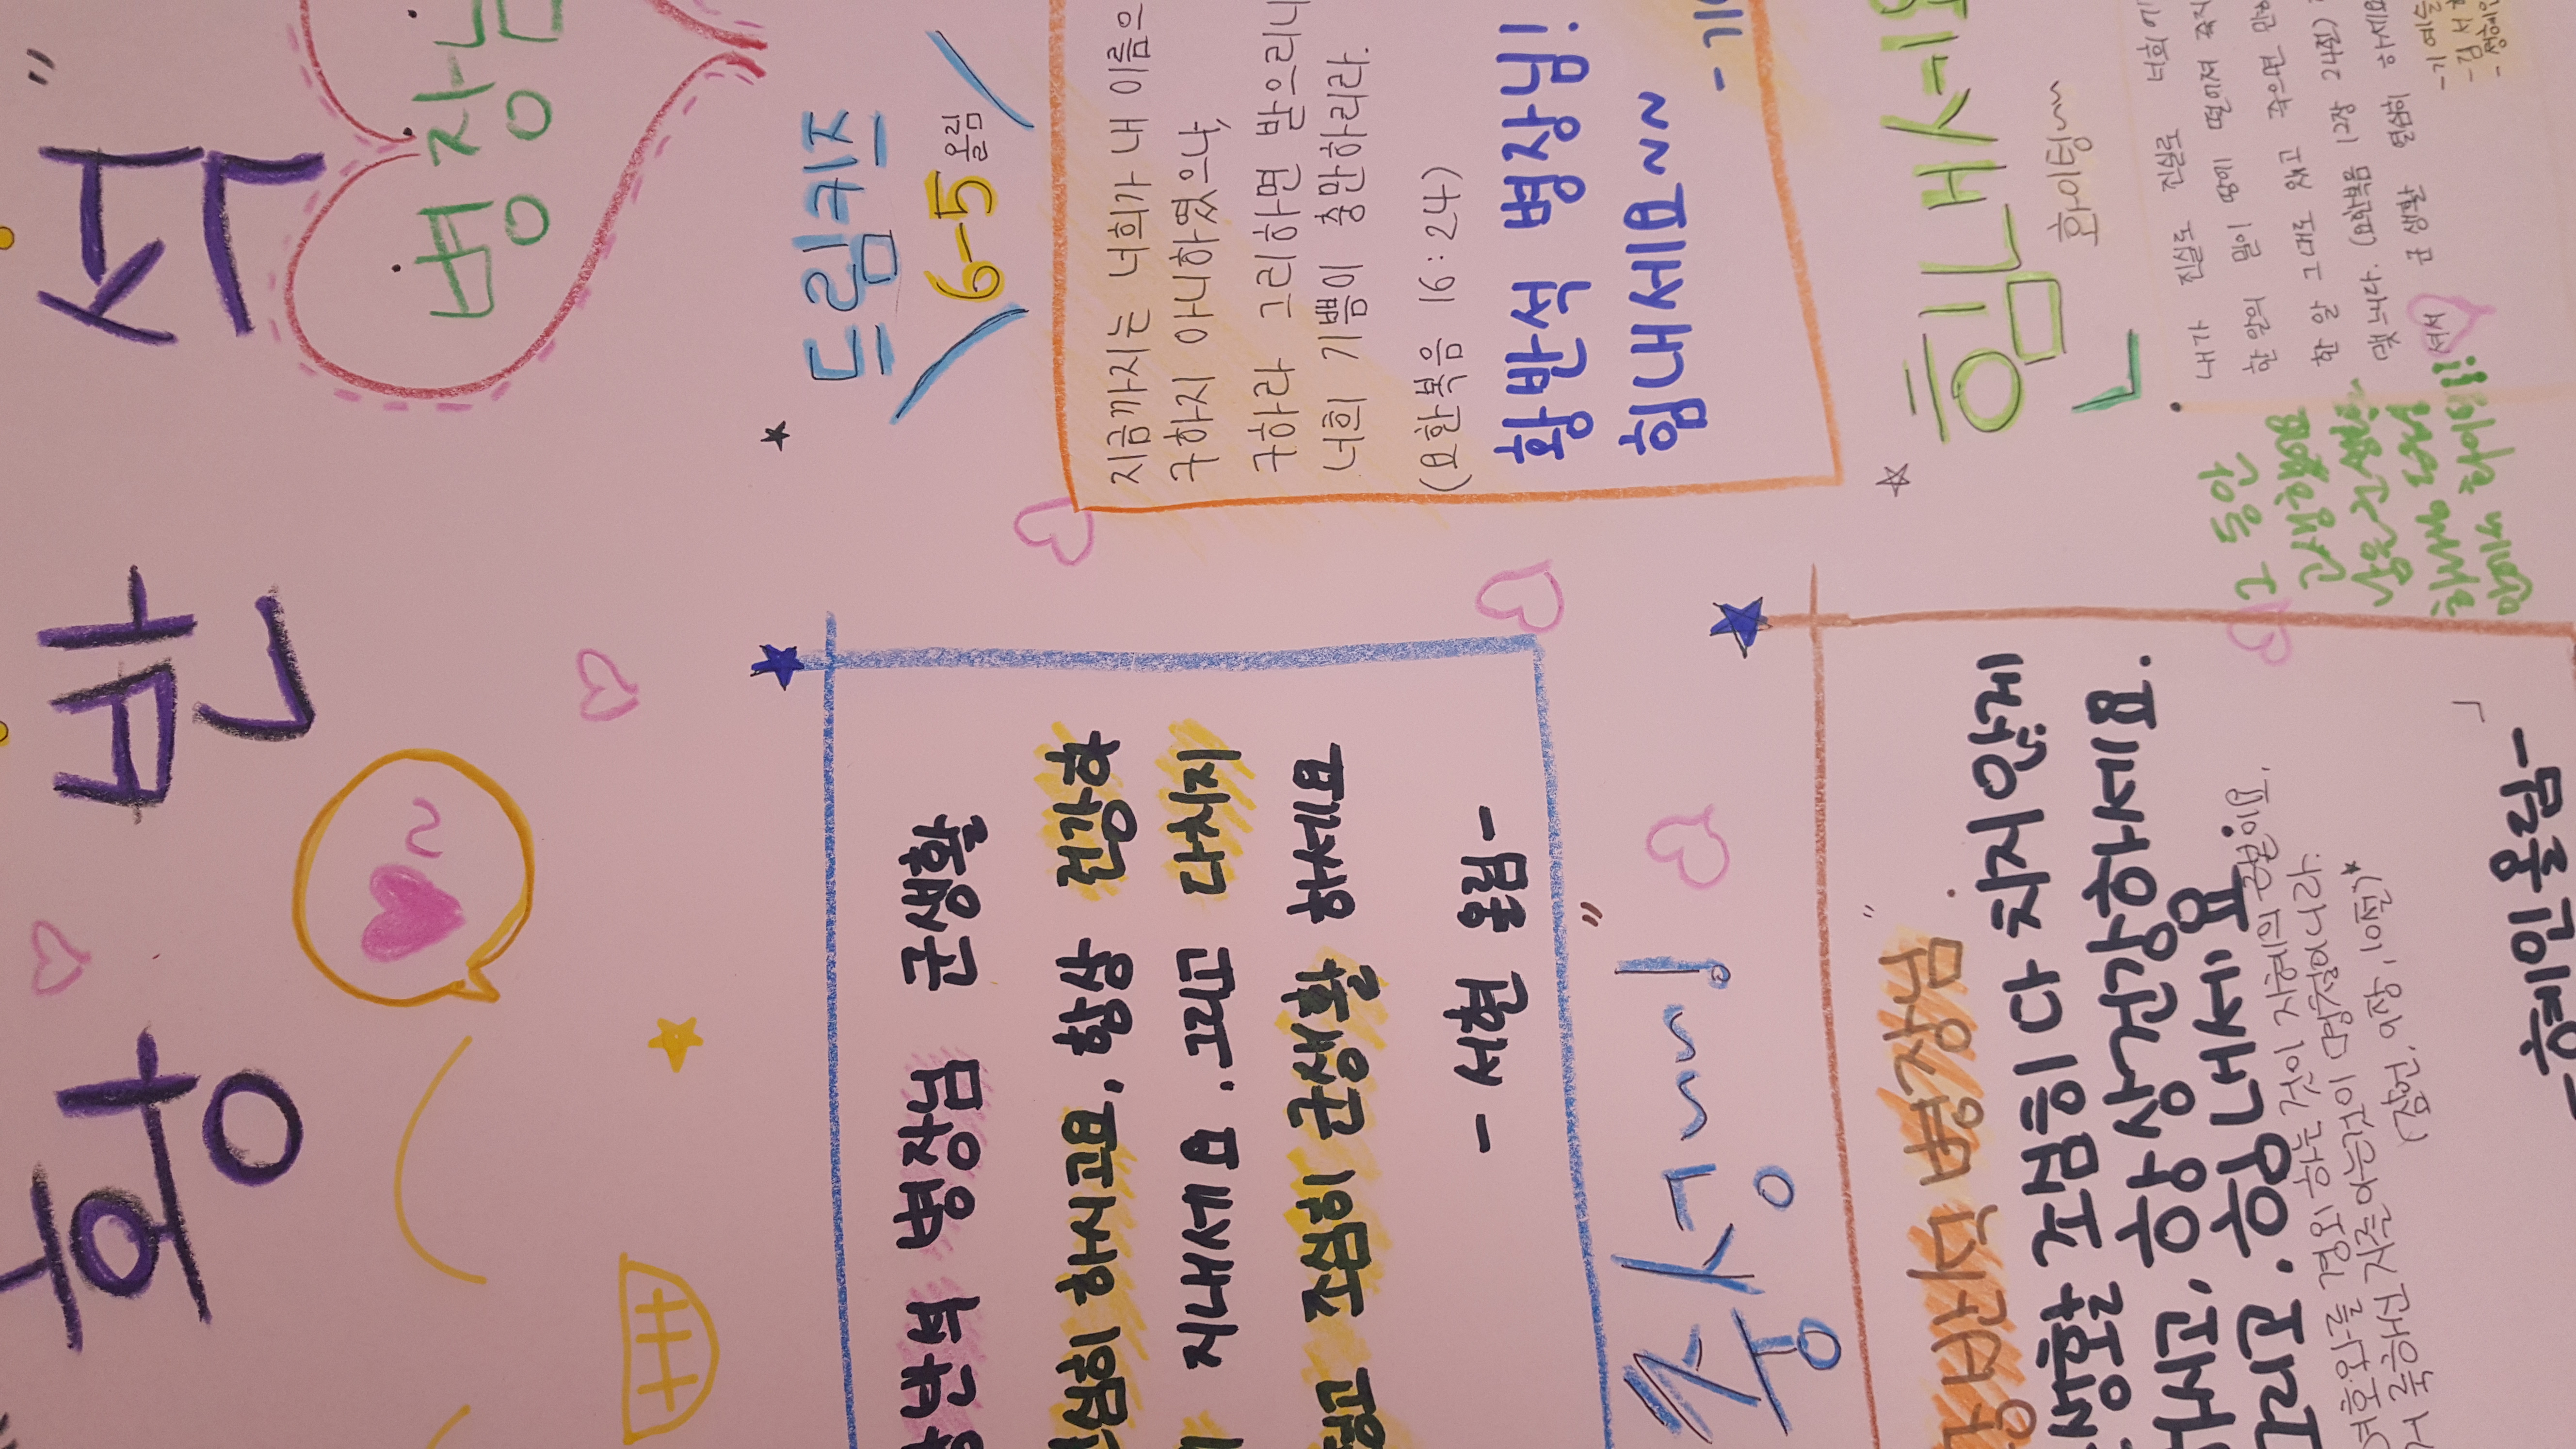 황 반 석
병장님
드림키즈
6-5 올림
지금까지는 너희가 내 이름으
구하지 아니하였으나,
구하라 그리하면 받으리니
너희 기쁨이 충만하리라.
(요한복음 16:24)
황반석 병장님!
힘내세요~~
힘내세요
화이팅~~
내가 진실로 진실로 너희에
한 알의 밀이 땅에 떨어져 죽지
한 알 그대로 있고 죽으면 많
맺느니다. (요한복음 12장 24절)
군 생활 열심히 하세요
그 동안
반석 병장님 군생활
심히 하시고요. 항상 건강하
지내세요. 그리고 다치지
조심히 군생활 하세요
- 서현 올림 -
충성~~!"
황반석 병장님"
생활 조심히 다치지 않게
항상 건강하세요.
그리고. 힘내세요
여호와를 경외하는 것이 지혜의 근본이요.
거룩하신 자를 아는것이 명철이니라.
(잠언, 9장, 10절)*
-혜인올림-